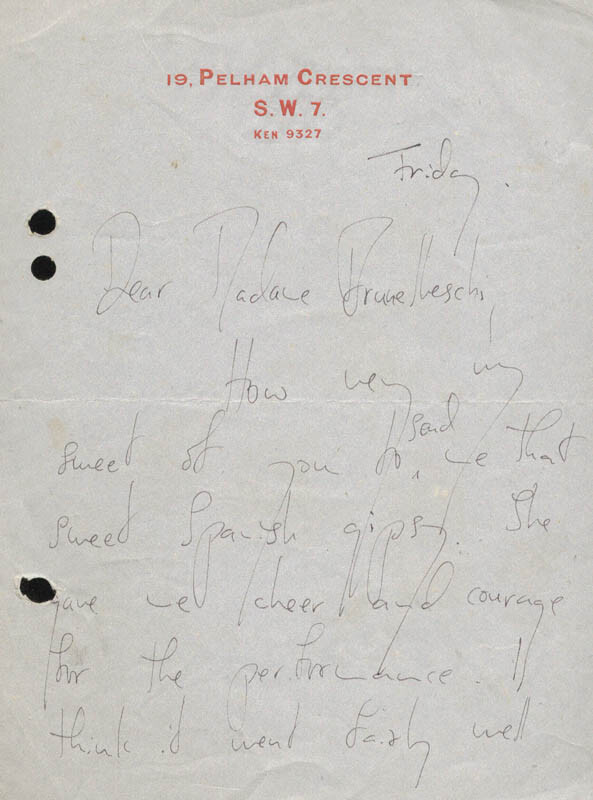 19, PELHAM CRESCENT
S. W. 7.
KEN 9327
Friday.
Dear Madame Brunelleschi,
How very
sweet of you to send me that
sweet Spanish gipsy. She
gave me cheer and courage
for the performance. I
think it went fairly well